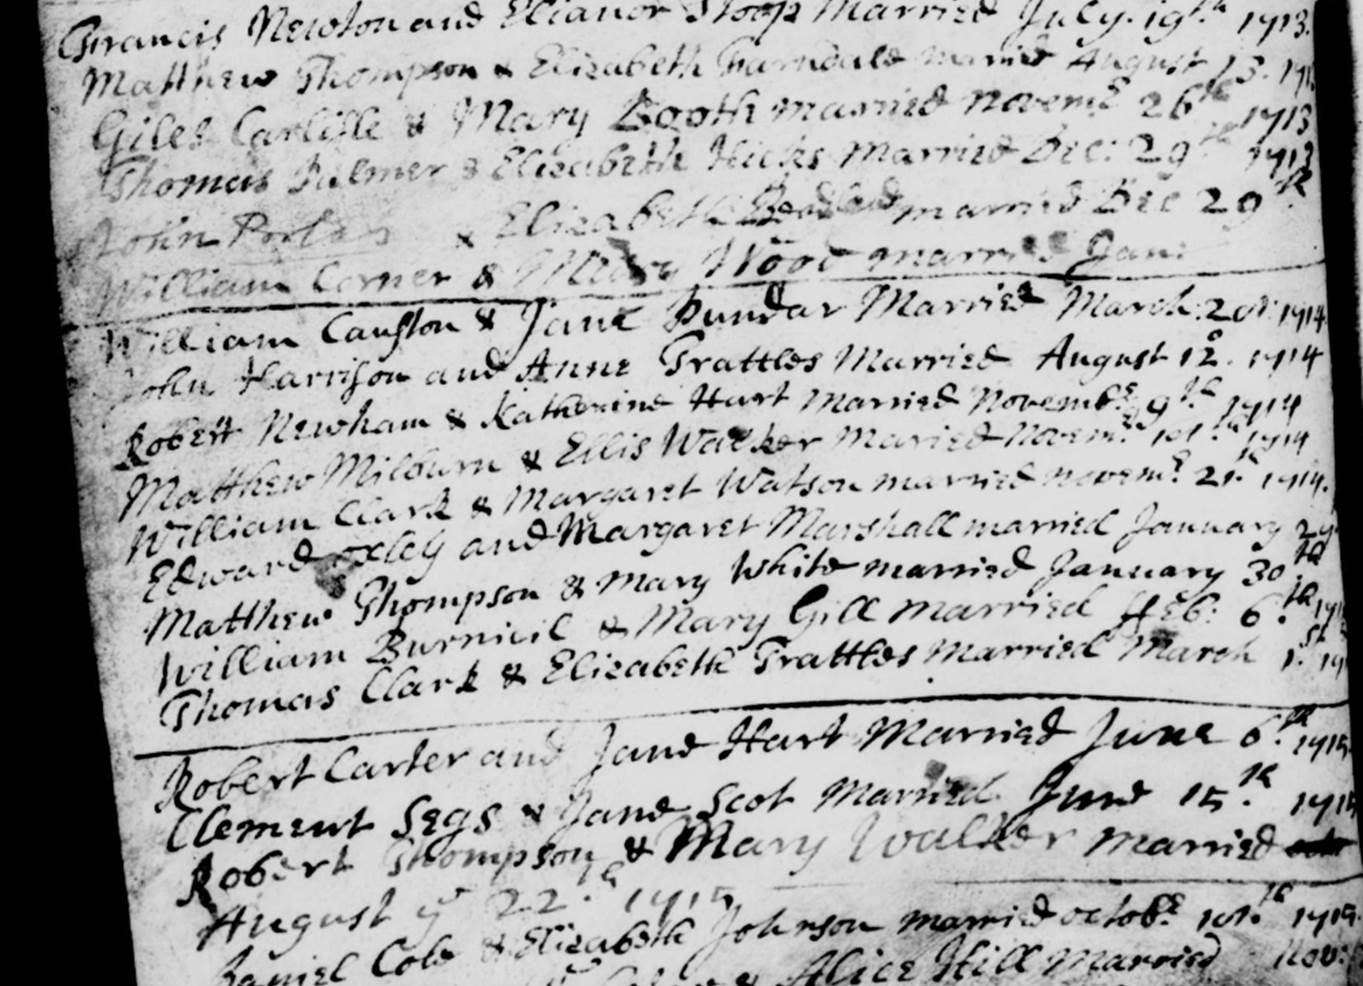 Francis Newton and Elianor Stoop Married July. 19th 1713.
Matthew Thompson & Elizabeth Farndale married August 13. 171
Giles Carlisle & Mary Booth married Novemr 26th 1713
Thomas Palmer & Elizabeth Hicks Married Dec: 29th 1713
John & Elizabeth married Dec 29th
William Corner & Mary Wood married Jan:
William Causton & Jane Dundar Married March: 1714
John Harrison and Anne Trattles Married August 12. 1714
Robert Newham & Katherine Hart Married Novembr 9th 1714
Matthew Milburn & Ellis Walker Maried Novemr 1714
William Clark & Margaret Watson married Novemr 21. 1714.
Edward oxley and Margaret Marshall married January 29
Matthew Thompson & Mary White married January 30th
William Burnicil & Mary Gill married Feb: 6th 171
Thomas Clark & Elizabeth Trattles Married March 1st 171
Robert Carter and Jane Hart Married June 6th 1715
Clement Segs & Jane Scot Married June 15th 1715
Robert Thompson & Mary Walker married
August ye 22th 1715
Daniel Cole & Elizabeth Johnson married octobr 1715
& Alice Hill Married Nov: